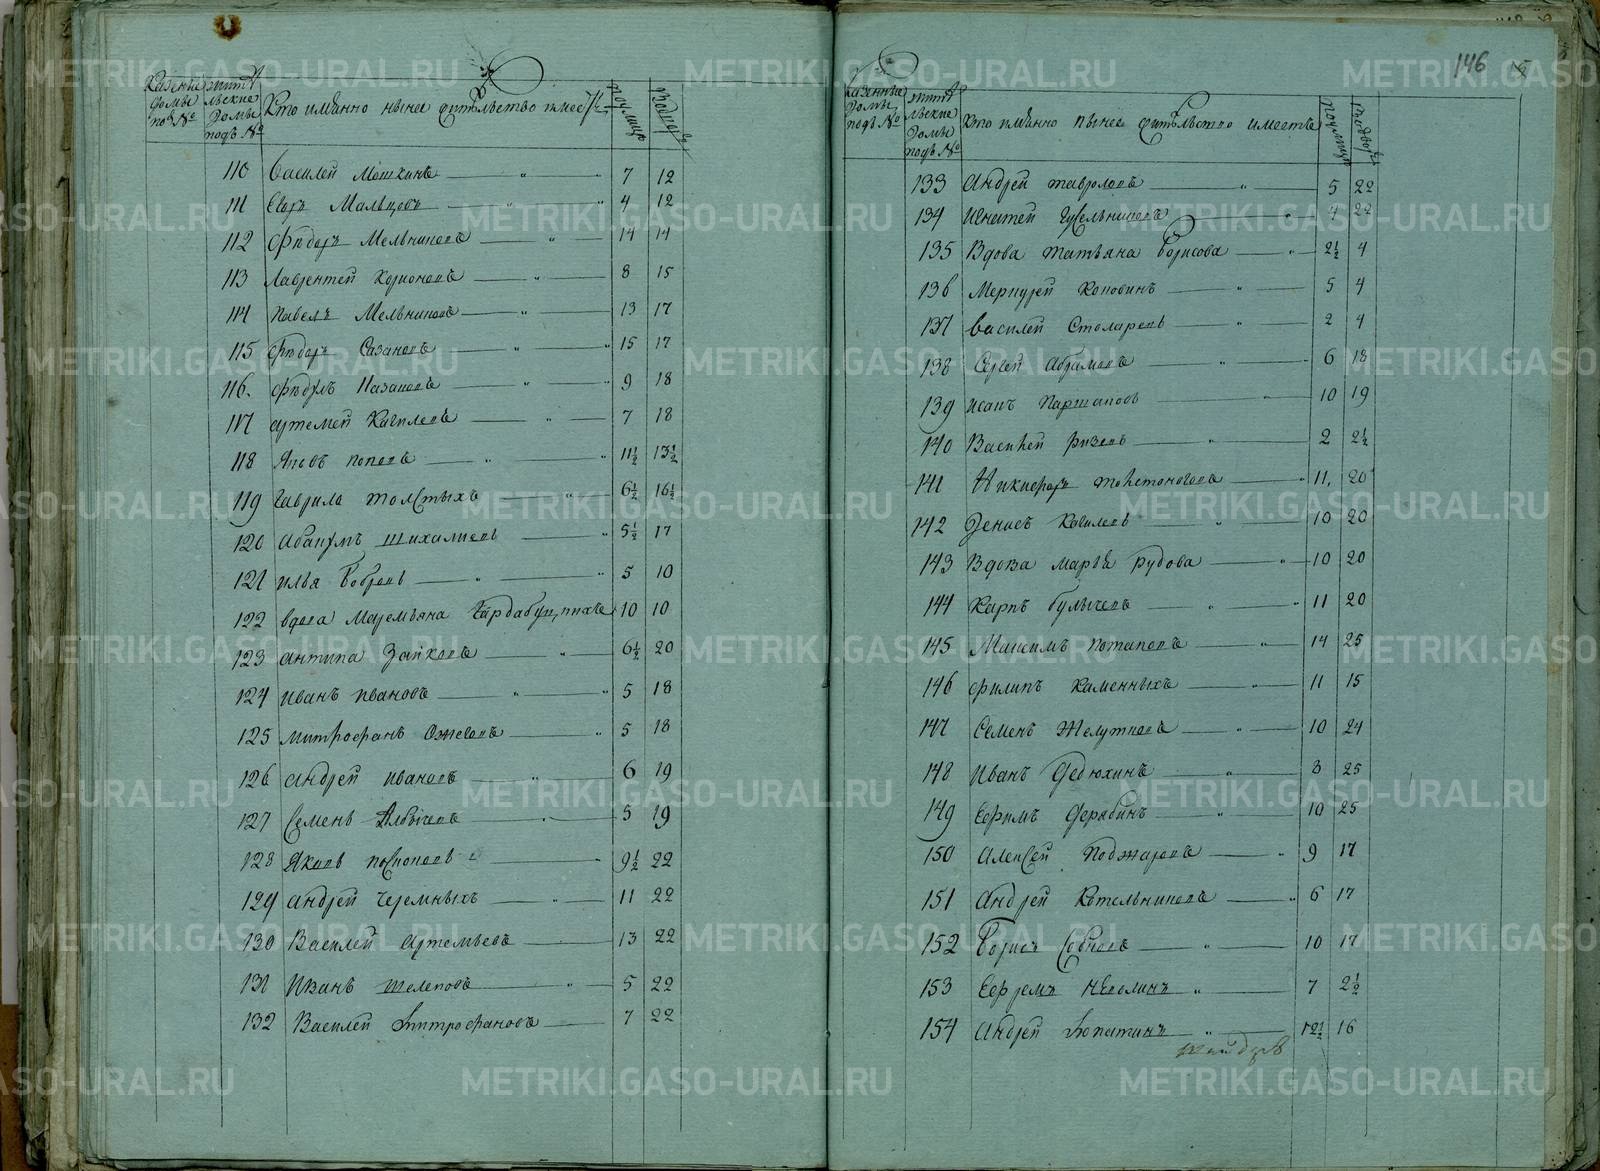 146
Казенные домы подъ №
жительские домы подъ №
Кто имянно ныне жительство имеетъ
По улице
Во дворъ
110 Василей Мошкинъ — " — " 7 12
111 Егоръ Мальцовъ — " — " 4 12
112 Федоръ Мельниковъ — " — 14 14
113 Лаврентей Корионовъ — " — 8 15
114 Павелъ Мельниковъ — " — 13 17
115 Федоръ Сазановъ — " — " 15 17
116. Федулъ Казановъ — " — " 9 18
117 Артемей Кобилевъ — " — 7 18
118 Яковъ Поповъ — " — " 11½ 13½
119 Гаврила Толстыхъ — " — 6½ 16½
120 Абакумъ Шихалиевъ — " 5½ 17
121 Илья Бобровъ — " — " 5 10
122 вдова Маремьяна 10 10
123 Антипа Зайковъ — " — 6½ 20
124 Иванъ Ивановъ — " — " 5 18
125 Митрофанъ Ожеговъ — " 5 18
126 Андрей Ивановъ — " — 6 19
127 Семенъ — " — 5 19
128 Яковъ — " 9½ 22
129 Андрей Черемныхъ — " — 11 22
130 Василей Артемьевъ — 13 22
131 Иванъ Шелеповъ — " — 5 22
132 Василей Митрофановъ — 7 22
Казенные домы подъ №
жительские домы подъ №
Кто имянно ныне жительство имеетъ
По улице
Во дворъ
133 Андрей Гавриловъ — " — 5 22
134 Игнатей — " 4 22
135 Вдова Татьяна Борисова — " — 2½ 4
136 Меркурей Коновинъ — " — 5 4
137 Василей Столаревъ — " — 2 4
138 Сергей Абрамовъ — " — " 6 18
139 Исакъ Паршаковъ — " — 10 19
140 Василей Ризевъ — " — 2 2½
141 Никифоръ Толстоноговъ — " 11, 20
142 Денисъ Кобилевъ — " — 10 20
143 Вдова Марья Рудова — " — 10 20
144 Карпъ Булычовъ — " — " 11 20
145 Максимъ Потаповъ — " — 14 25
146 Филипъ Каменныхъ — " — 11 15
147 Семенъ Желутковъ — " — 10 24
148 Иванъ Федюхинъ — " — 8 25
149 Ефимъ Дерябинъ — " — 10 25
150 Алексей Поджаровъ — " 9 17
151 Андрей Котельниковъ — " 6 17
152 Борисъ — " — 10 17
153 Ефремъ Неволинъ " — 7 2½
154 Андрей Лопатинъ — " — 12½ 16
METRIKI.GASO-URAL.RU